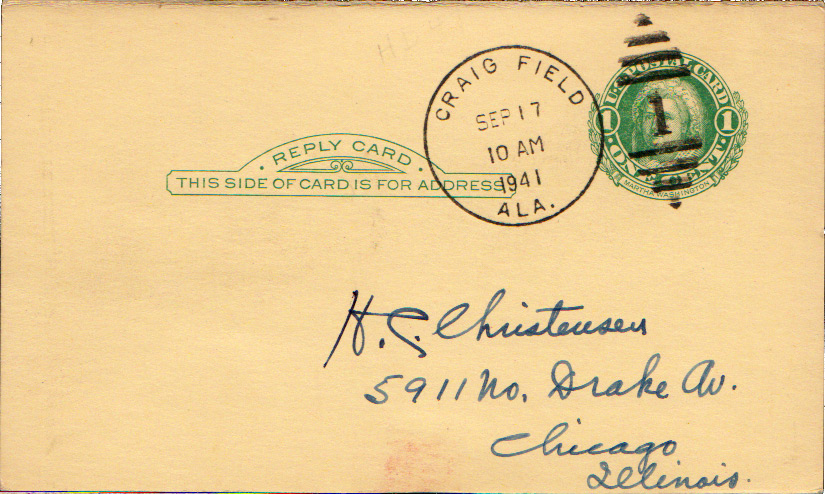 CRAIG FIELD
SEP 17
10 AM
1941
ALA.
U.S. POSTAL CARD
1 1 1
MARTHA WASHINGTON
REPLY CARD
THIS SIDE OF CARD IS FOR ADDRESS
H. C. Christensen
5911 No. Drake Av.
Chicago
Illinois.